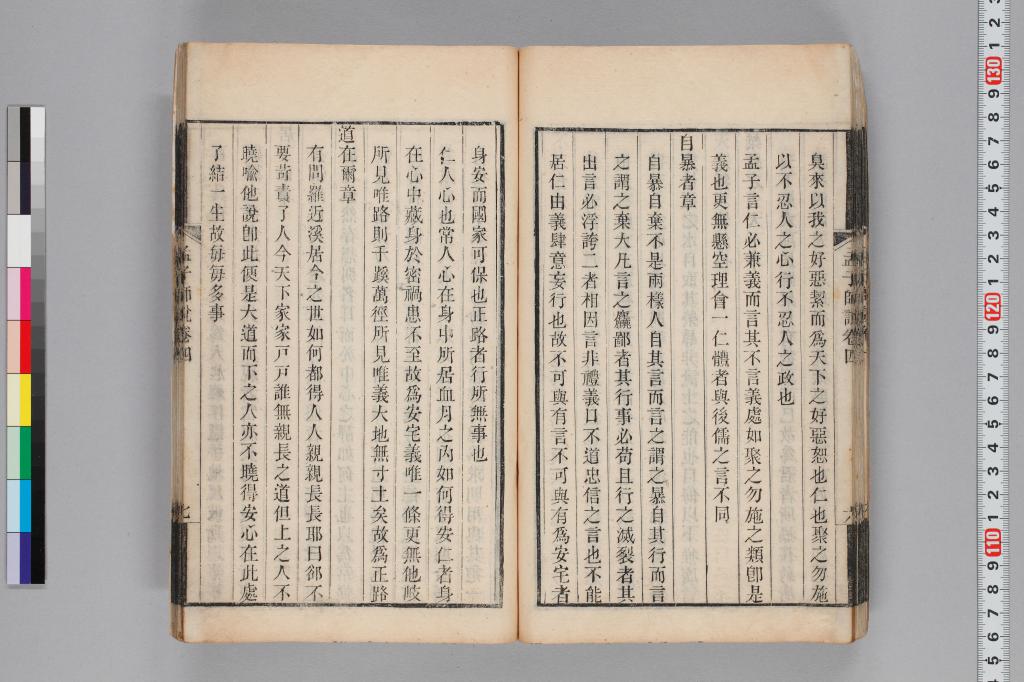 臭來以我之好惡絜而爲天下之好惡恕也仁也聚之勿施
以不忍人之心行不忍人之政也
孟子言仁必兼義而言其不言義處如聚之勿施之類卽是
義也更無懸空理會一仁體者與後儒之言不同
自暴者章
自暴自棄不是兩樣人自其言而言之謂之暴自其行而言
之謂之棄大凡言之麤鄙者其行事必苟且行之滅裂者其
出言必浮誇二者相因言非禮義口不道忠信之言也不能
居仁由義肆意妄行也故不可與有言不可與有爲安宅者
孟子師說卷四
身安而國家可保也正路者行所無事也
仁人心也常人心在身中所居血肉之內如何得安仁者身
在心中藏身於密禍患不至故爲安宅義唯一條更無他岐
所見唯路則千蹊萬徑所見唯義大地無寸土矣故爲正路
道在爾章
有問羅近溪居今之世如何都得人人親親長長耶曰卻不
要苛責了人今天下家家戸戸誰無親長之道但上之人不
曉喩他說卽此便是大道而下之人亦不曉得安心在此處
了結一生故每每多事
孟子師說卷四
七
130
120
110